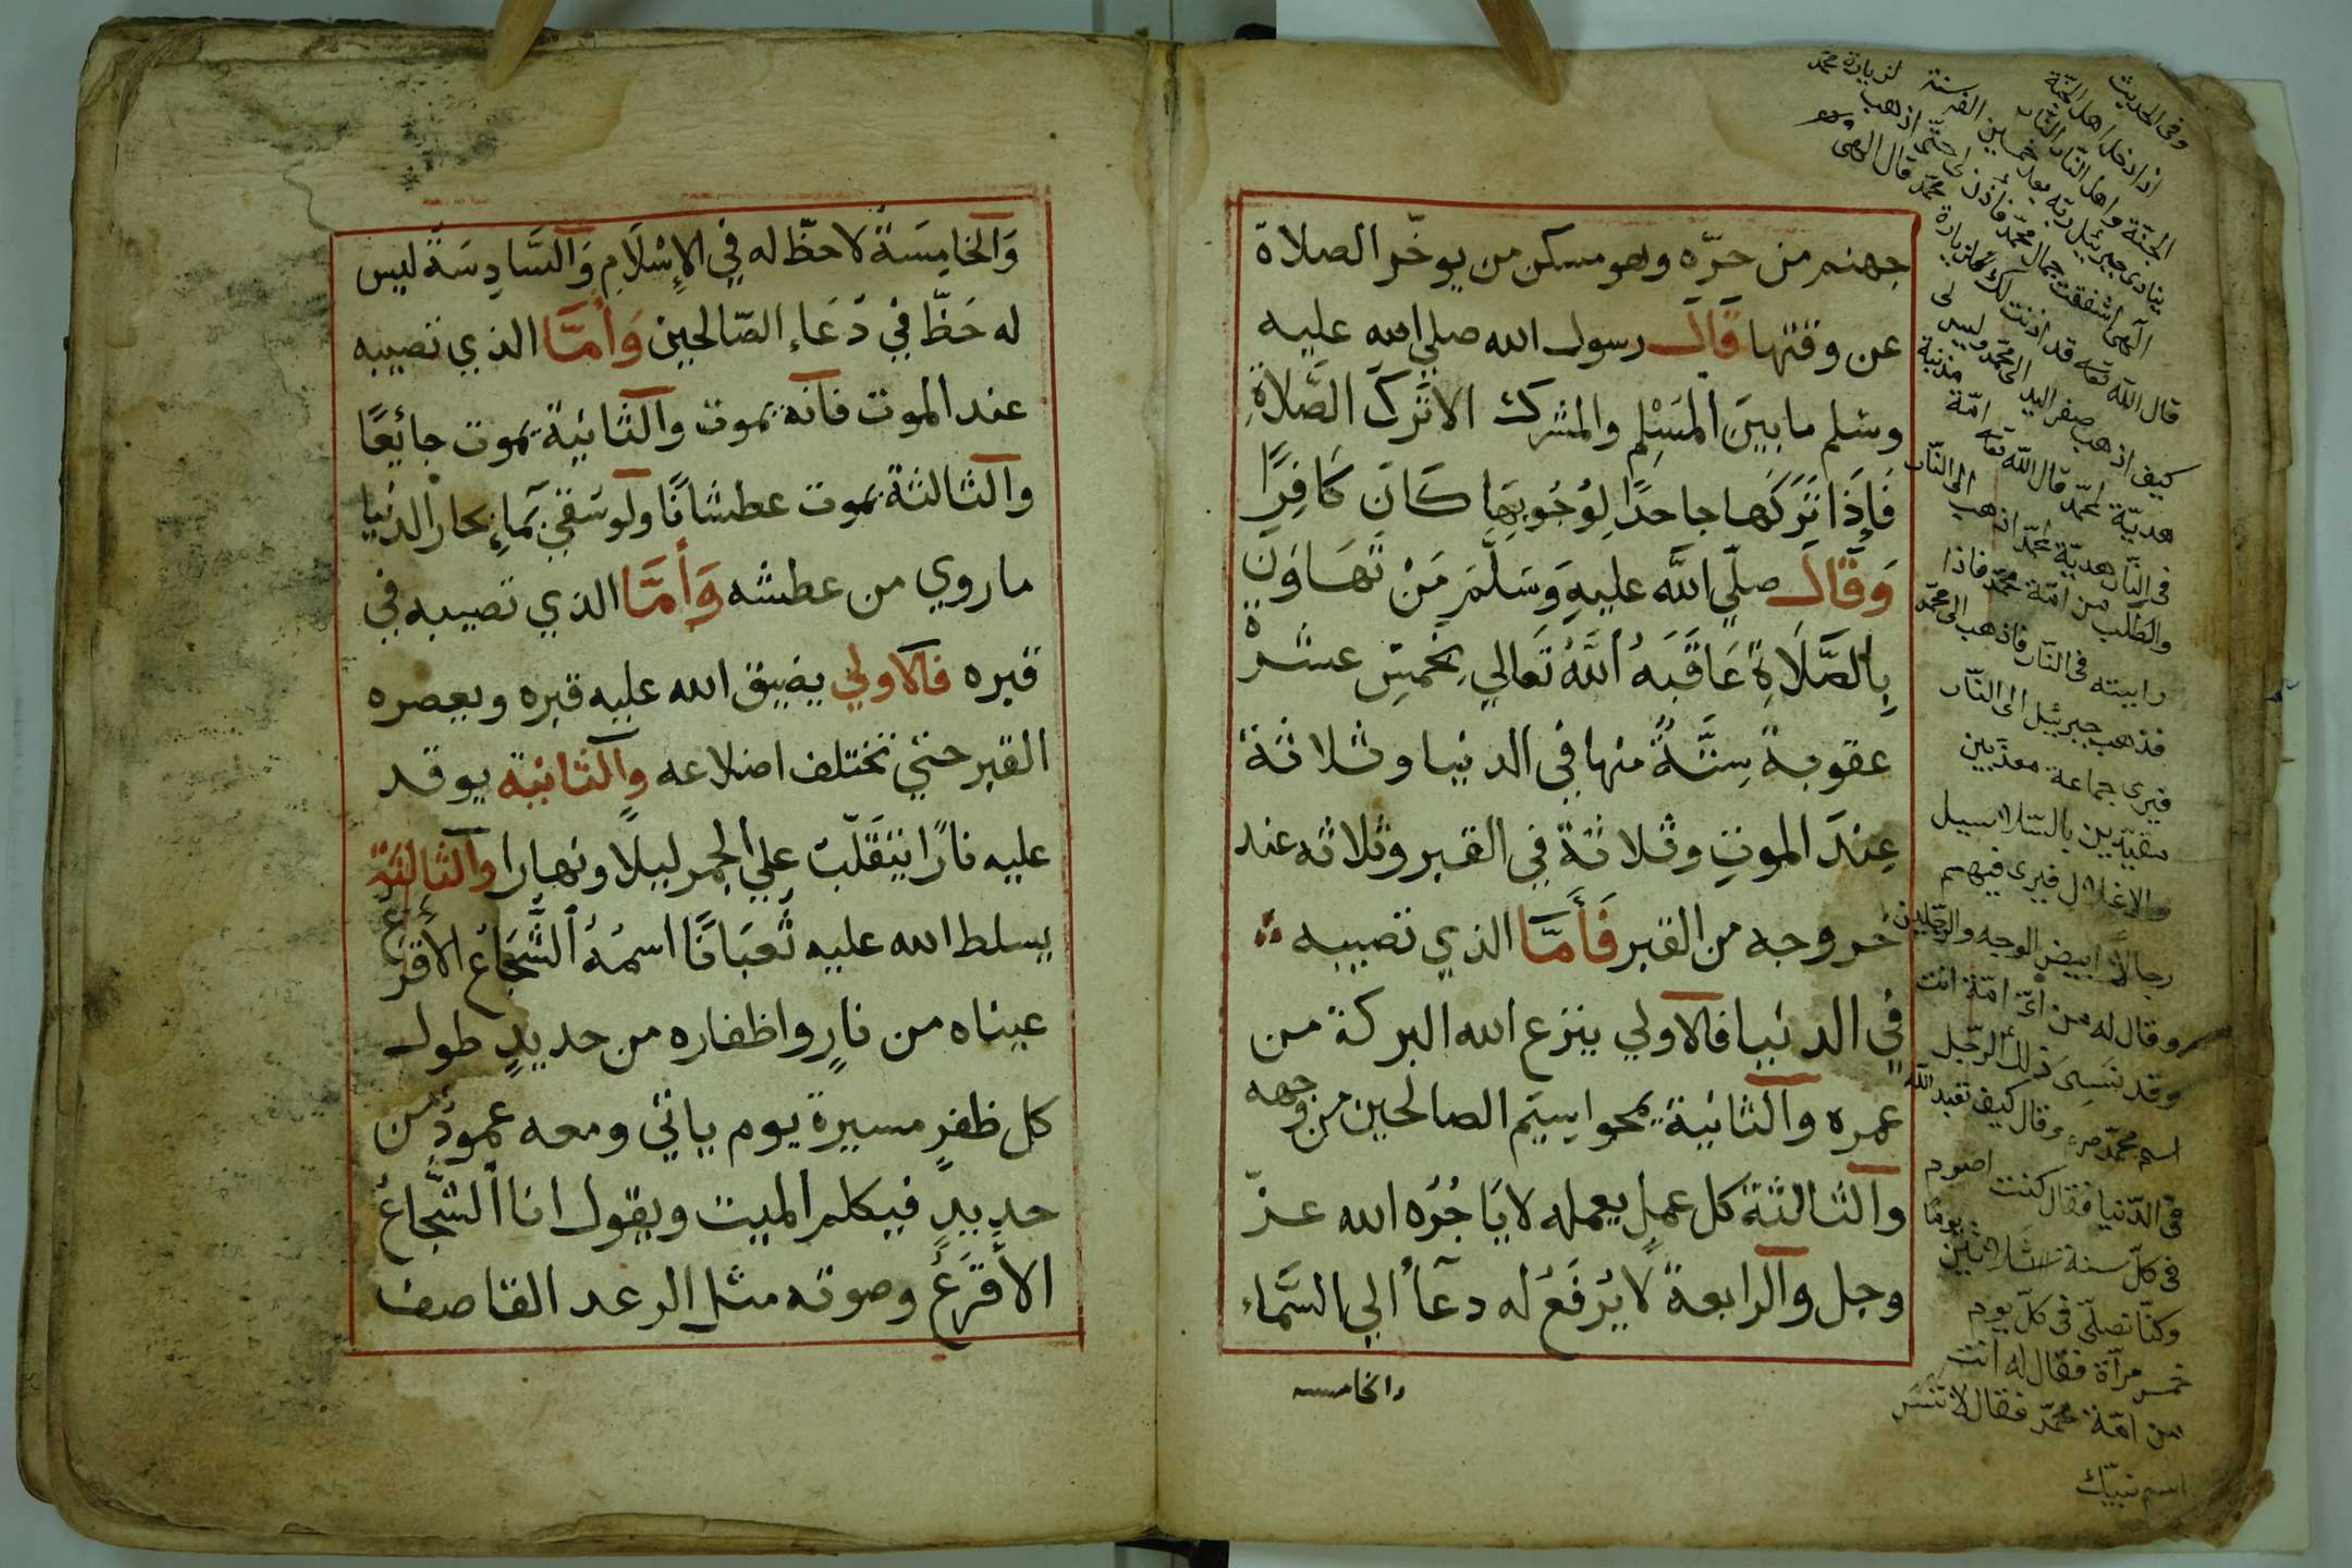 جهنم من حرّه وهو مسكن من يوخّر الصلاة
عن وقتها قال رسول الله صلي الله عليه
وسلم ما بين المسْلِم والمشرك الا تَرك الصَّلاةِ
فَإِذَا تَرَكَها جاحدًا لِوُجُوبِهَا كَانَ كَافِرًا
وَقَالَ صلّي اللَّه عليهِ وَسَلَّمَ مَنْ تَهَاوَن
بِالصَّلَاةِ عَاقَبَهُ اللَّهُ تَعالي بِخَمسِ عشرة
عقوبةً سِتَّةٌ منها في الدنيا وثلاثة
عِندَ الموتِ وثلاثةً في القبر وثلاثه عند
خروجه من القبر فَأَمَّا الذي تصيبه
في الدنيا فالاولي ينزع الله البركة من
عمره والثانية يمحوا سيم الصالحين من وجهه
والثالثة كل عملٍ يعمله لا يَاجُرُه الله عزّ
وجل والرابعة لا يُرفَعُ له دعآ الي السَّماء
والخامسه
وفى الحديث
اذا دخل اهل الجنّة
الجنّة واهل النّار النّار
ينادى جبرئيل ربّه بعد خمسين الف سنة لزيارة محمّد
الٓهى اشفقت جمال محمّد فأذن لى حتّى اذهب
قال اللّه تعه قد اذنت لك لزيارة محمّد قال الٓهى
كيف اذهب صفر اليد الى محمّد وليس لى
هديّة لمحمّد قال اللّه تعه امّة مذنبة
فى النّار هديّة محمّد اذهب الى النّار
والطلب من امّة محمّد فاذا
رايته فى النّار فاذهب الى محمّد
فذهب جبرئيل الى النّار
فيرى جماعة معذّبين
مقيّدين بالسّلاسيل
والاغلال فيرى فيهم
رجالاً ابيض الوجه والرّجلين
وقال له من اىّ امّة انت
وقد نسى ذلك الرّجل
اسم محمّد صم وقال كيف تعبد اللّه
فى الدّنيا فقال كنت اصوم
فى كلّ سنة ثلاثين يومًا
وكنّا نصلّى فى كلّ يوم
خمس مرّاة فقال له انت
من امّة محمّد فقال لا تنس
اسم نبيّك
وَالخامِسَةُ لا حظّ له في الإِسْلَامِ وَالسَّادِسَةُ ليس
له حَظّ في دُعَاءِ الصّالحين وَأَمَّا الذي تصيبه
عند الموت فانه يموت والثانية يموت جائعًا
والثالثة يموت عطشانًا ولو سُقي بمآءِ بحار الدنيا
ما روي من عطشه وَأَمَّا الذي تصيبه في
قبره فالاولي يضيق الله عليه قبره ويعصره
القبر حتي تختلف اضلاعه والثانية يوقد
عليه نارًا يتقَلّب علي الجمر ليلًا ونهارا والثالثة
يسلط الله عليه ثُعبَانًا اسمُهُ الشُّجَاعُ الأقرع
عيناه من نارٍ واظفاره من حديدٍ طول
كل ظفرٍ مسيرة يوم ياتي ومعه عمودٌ من
حديدٍ فيكلم الميت ويقول انا الشّجاعُ
الأقرَعُ وصوته مثل الرعد القاصف